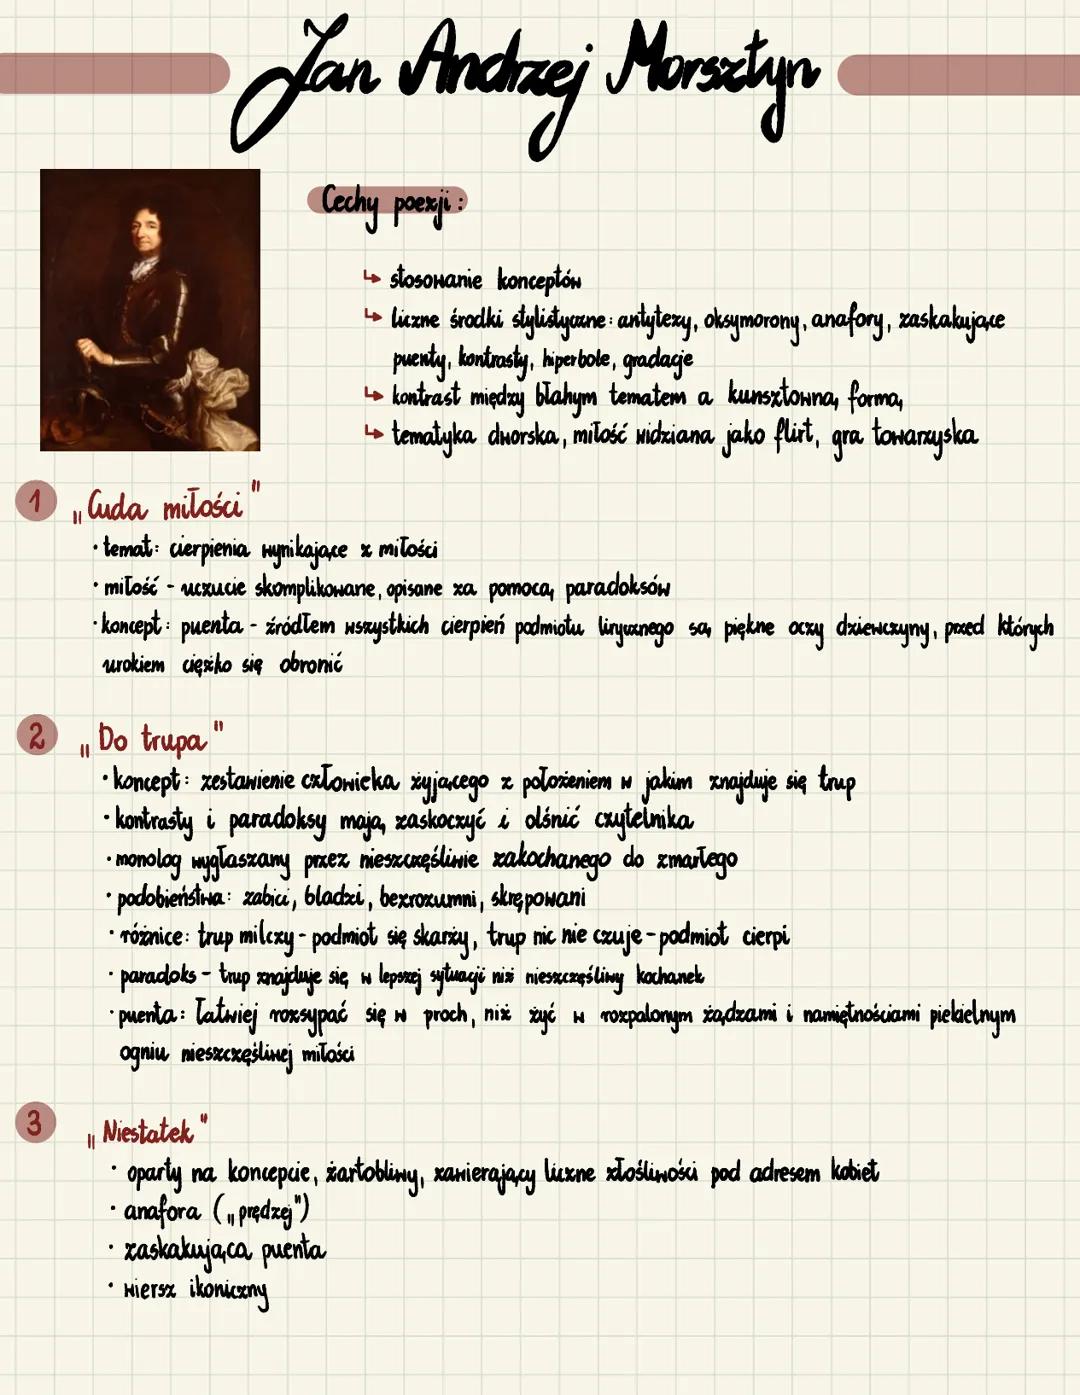 Jan Andrzej Morsztyn
Cechy poezji:
↳ stosowanie konceptów
↳ liczne środki stylistyczne: antytezy, oksymorony, anafory, zaskakujące
puenty, kontrasty, hiperbole, gradacje
↳ kontrast między błahym tematem a kunsztowną formą
↳ tematyka dworska, miłość widziana jako flirt, gra towarzyska
1 „Cuda miłości"
· temat: cierpienia wynikające z miłości
· miłość - uczucie skomplikowane, opisane za pomocą paradoksów
· koncept: puenta - źródłem wszystkich cierpień podmiotu lirycznego są piękne oczy dziewczyny, przed których
urokiem ciężko się obronić
2 „Do trupa"
· koncept: zestawienie człowieka żyjącego z położeniem w jakim znajduje się trup
· kontrasty i paradoksy mają zaskoczyć i olśnić czytelnika
· monolog wygłaszany przez nieszczęśliwie zakochanego do zmarłego
· podobieństwa: zabici, bladzi, bezrozumni, skrępowani
· różnice: trup milczy - podmiot się skarży, trup nic nie czuje - podmiot cierpi
· paradoks - trup znajduje się w lepszej sytuacji niż nieszczęśliwy kochanek
· puenta: łatwiej rozsypać się w proch, niż żyć w rozpalonym żądzami i namiętnościami piekielnym
ogniu nieszczęśliwej miłości
3 „Niestatek"
· oparty na koncepcie, żartobliwy, zawierający liczne złośliwości pod adresem kobiet
· anafora („prędzej")
· zaskakująca puenta
· wiersz ikoniczny